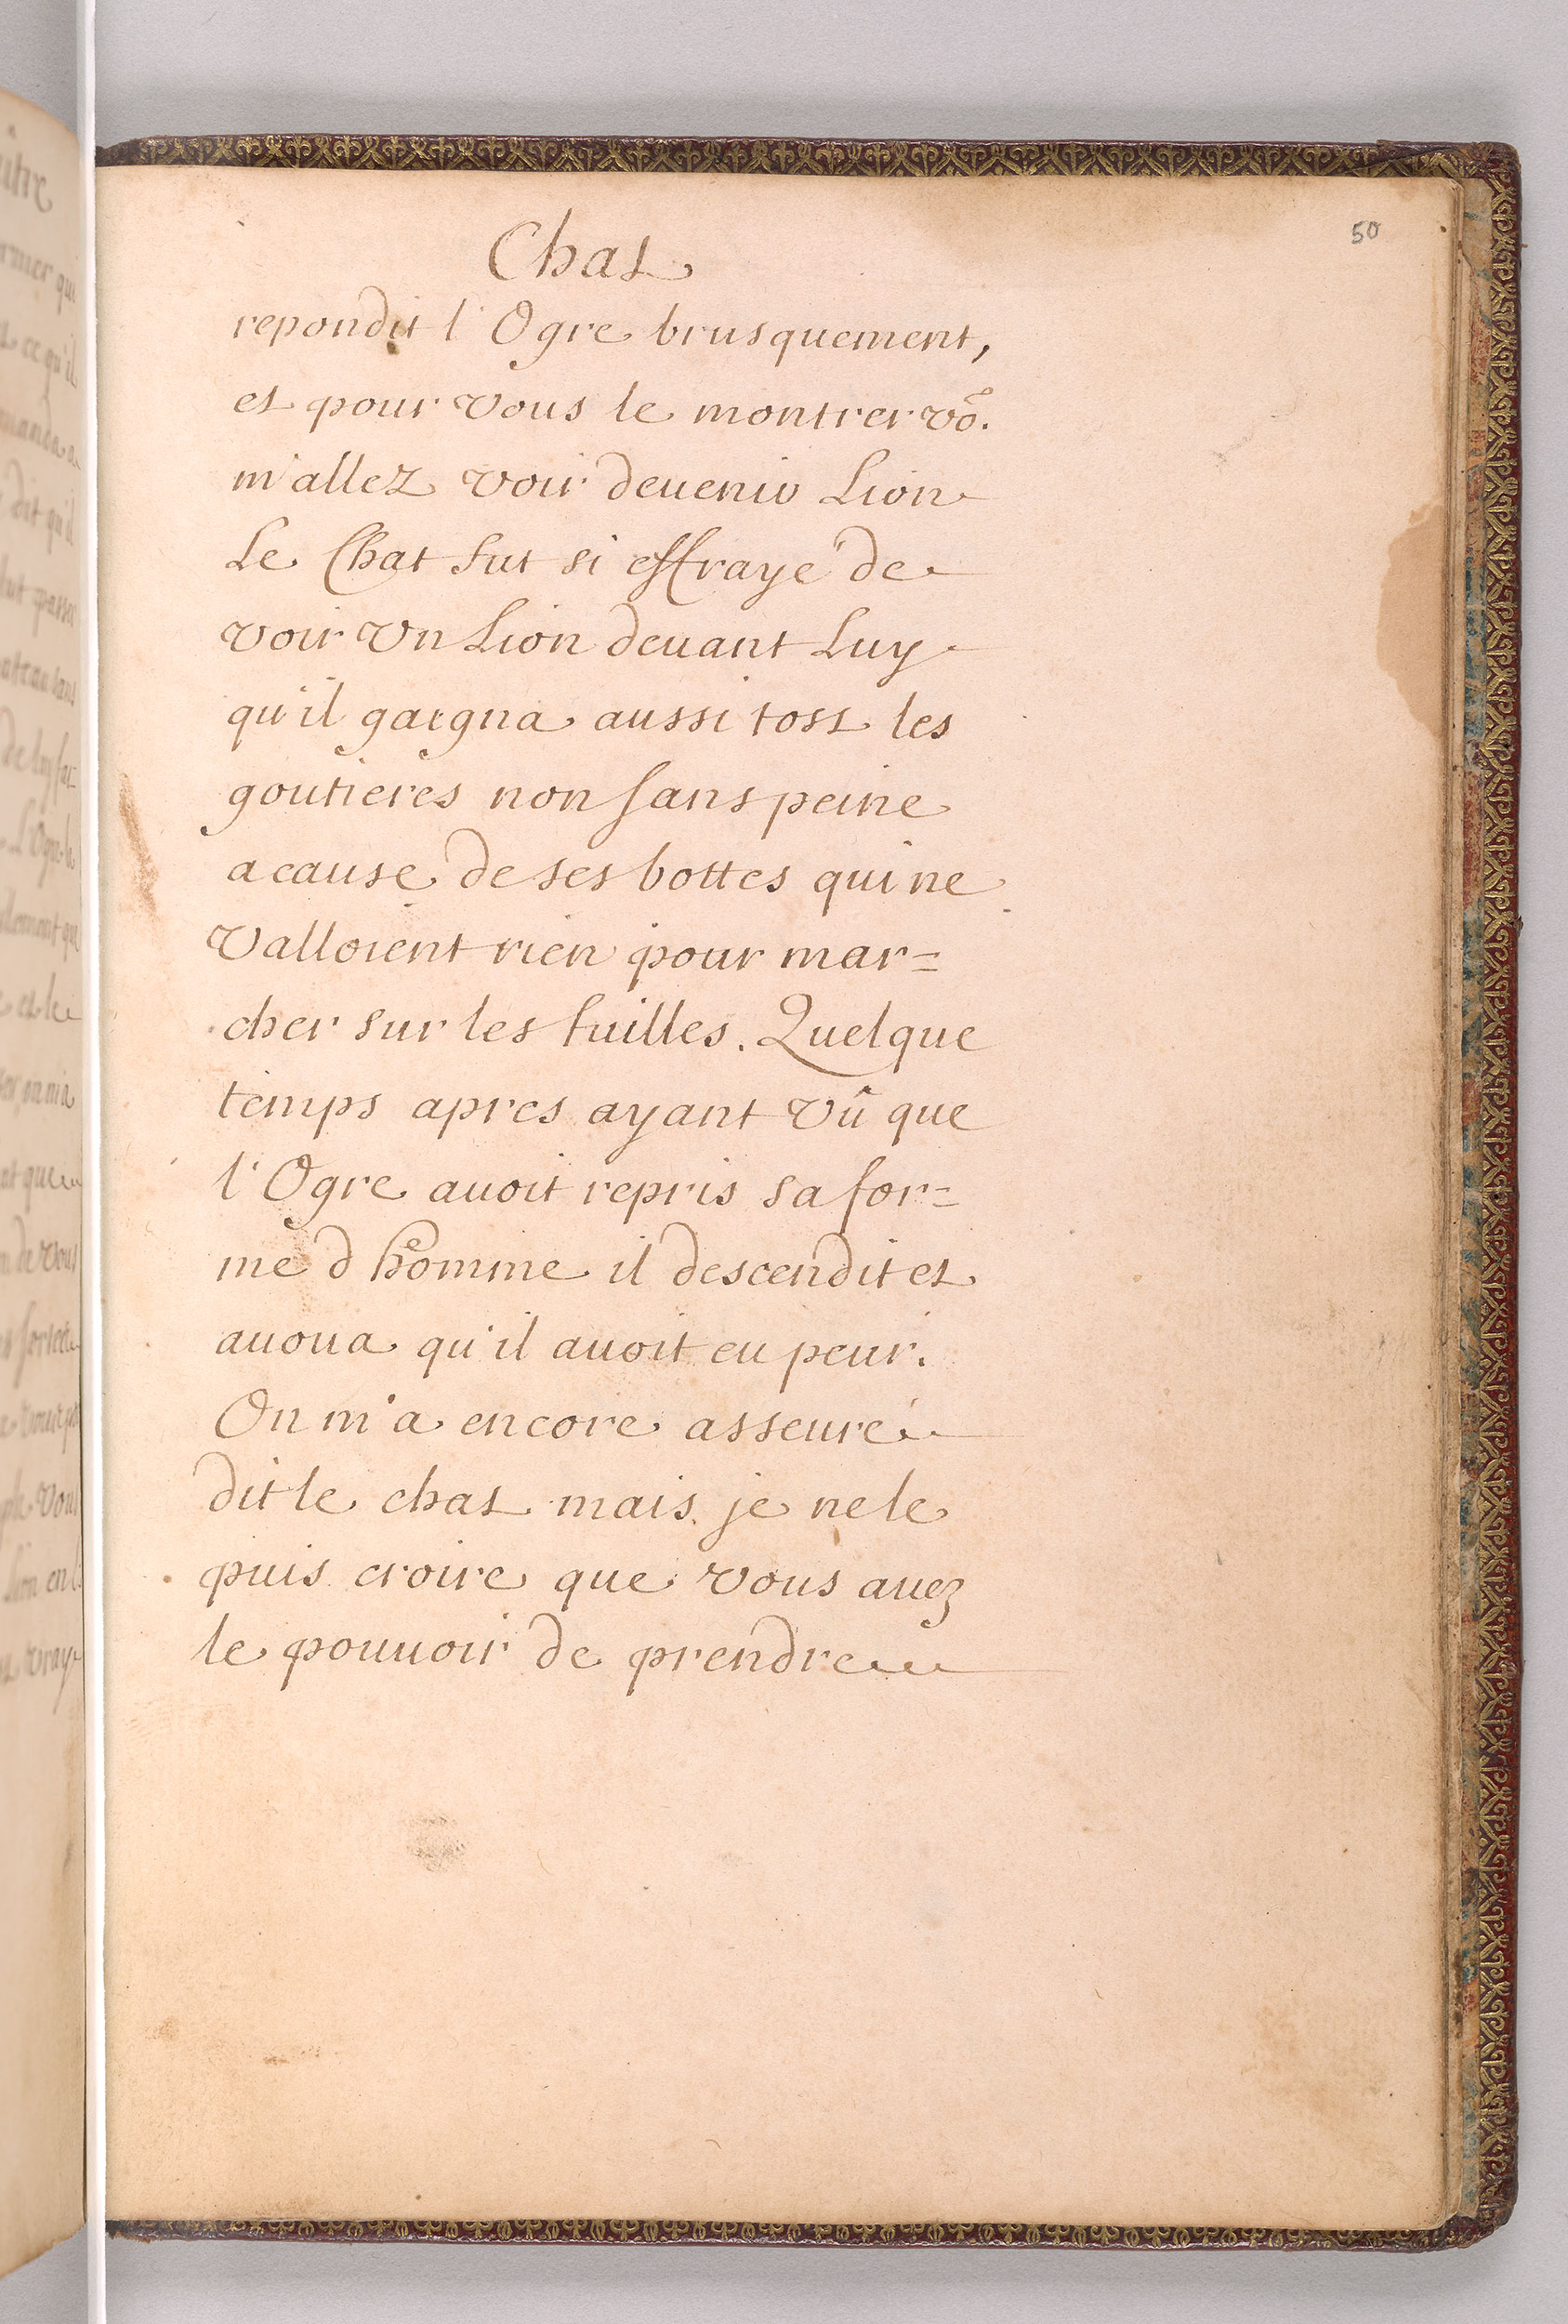 50
Chat
repondit l'Ogre brusquement,
et pour vous le montrer võ.
m'allez voir deuenir Lion
Le Chat fut si effrayé de
voir vn Lion deuant Luy
qu'il gaigna aussi tost les
goutieres non sans peine
a cause de ses bottes qui ne
valloient rien pour mar=
cher sur les tuilles. Quelque
temps apres ayant vû que
l'Ogre auoit repris sa for=
me d homme il descendit et
auoua qu'il auoit eu peur.
On m'a encore asseuré
dit le chat mais je ne le
puis croire que vous auez
le pouuoir de prendre